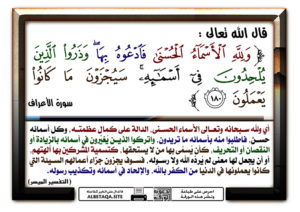 قال الله تعالى :
﴿ وَلِلَّهِ الْأَسْمَاءُ الْحُسْنَىٰ فَادْعُوهُ بِهَا ۖ وَذَرُوا الَّذِينَ
يُلْحِدُونَ فِي أَسْمَائِهِ ۚ سَيُجْزَوْنَ مَا كَانُوا
يَعْمَلُونَ ﴿١٨٠﴾
سورة الأعراف
أي ولله سبحانه وتعالى الأسماء الحسنى، الدالة على كمال عظمته، وكل أسمائه
حسن، فاطلبوا منه بأسمائه ما تريدون، واتركوا الذين يُغيِّرون في أسمائه بالزيادة أو
النقصان أو التحريف، كأن يُسمى بها من لا يستحقها، كتسمية المشركين بها آلهتهم،
أو أن يجعل لها معنى لم يُرده الله ولا رسوله، فسوف يجزون جزاء أعمالهم السيئة التي
كانوا يعملونها في الدنيا من الكفر بالله، والإلحاد في أسمائه وتكذيب رسوله.
(التفسير الميسر)
احرص على طباعة
ونشر هذه الورقة
ALBETAQA.SITE